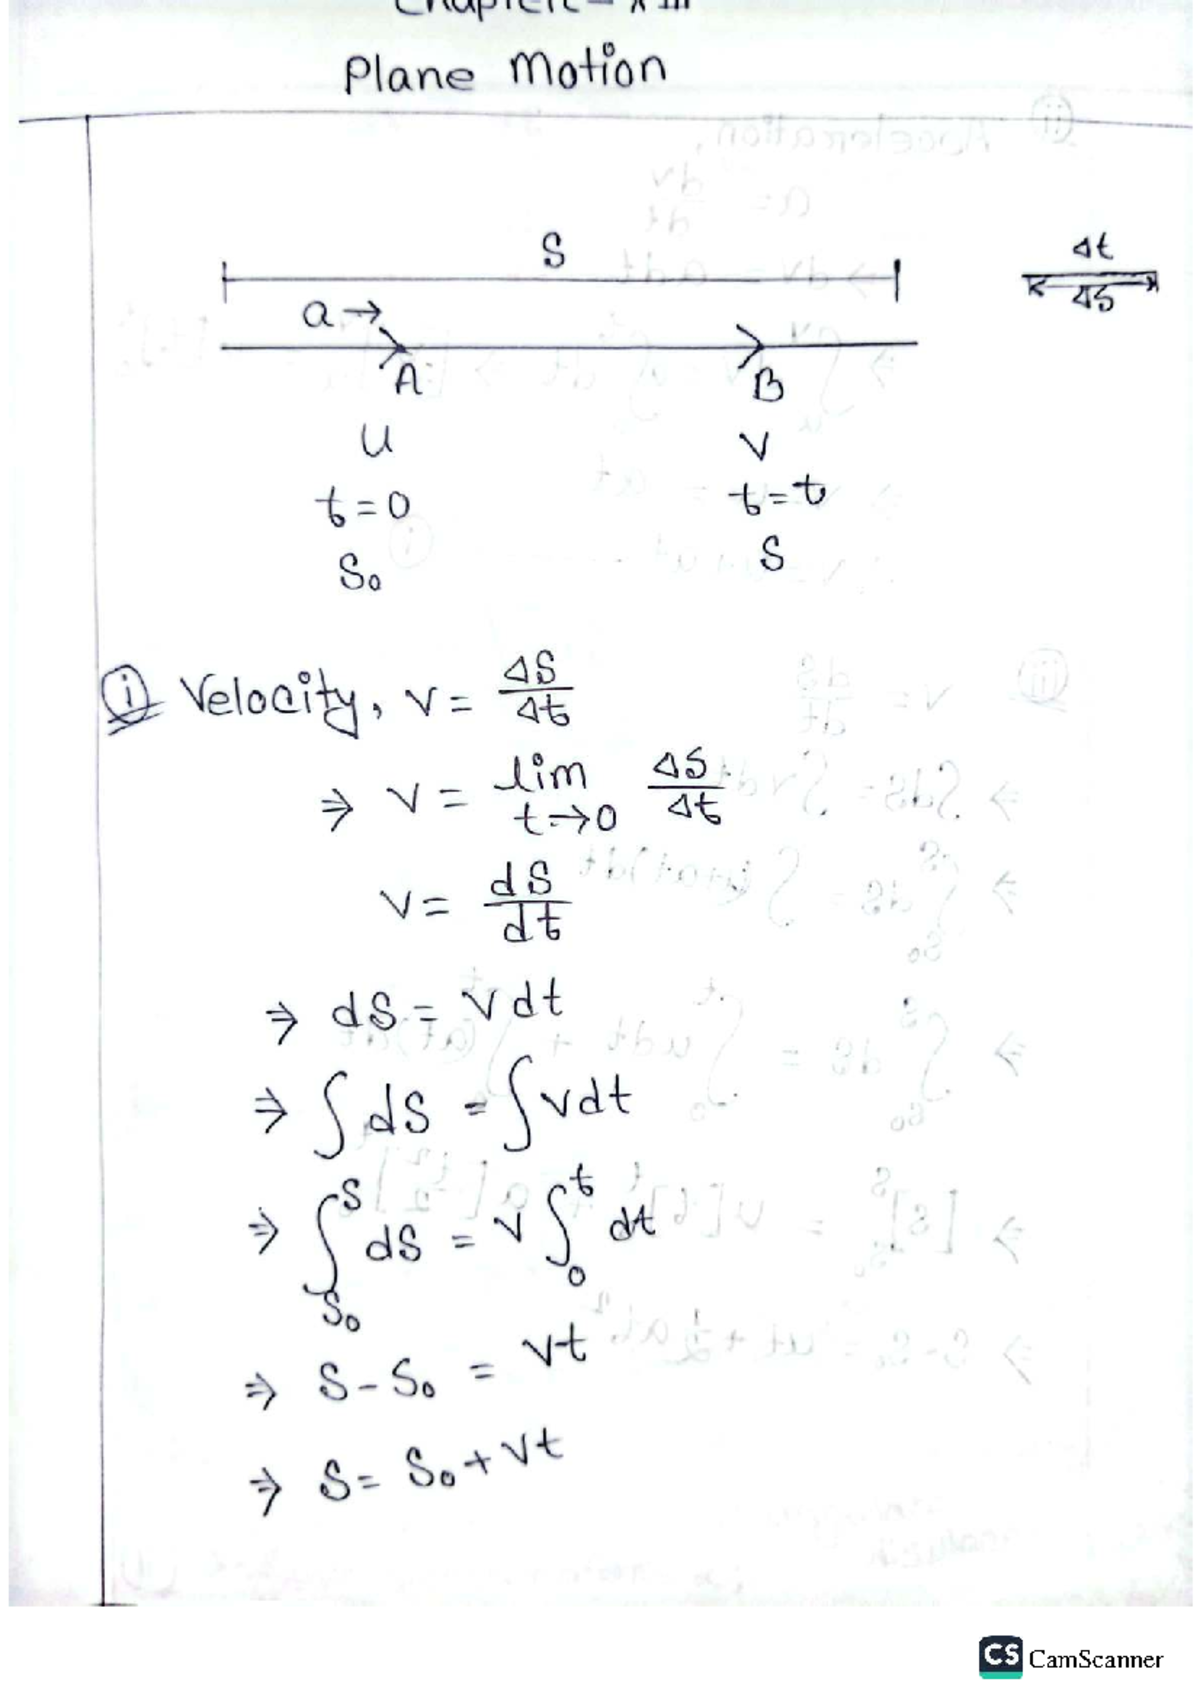 Chapter - XIII
Plane Motion
S
Δt
ΔS
a →
A
B
u
v
t = 0
t = t
S₀
S
(i) Velocity, v = ΔS/Δt
⇒ v = lim t→0 ΔS/Δt
v = dS/dt
⇒ dS = v dt
⇒ ∫ dS = ∫ v dt
⇒ ∫_{S₀}^{S} dS = v ∫_{0}^{t} dt
⇒ S - S₀ = vt
⇒ S = S₀ + vt
CS CamScanner